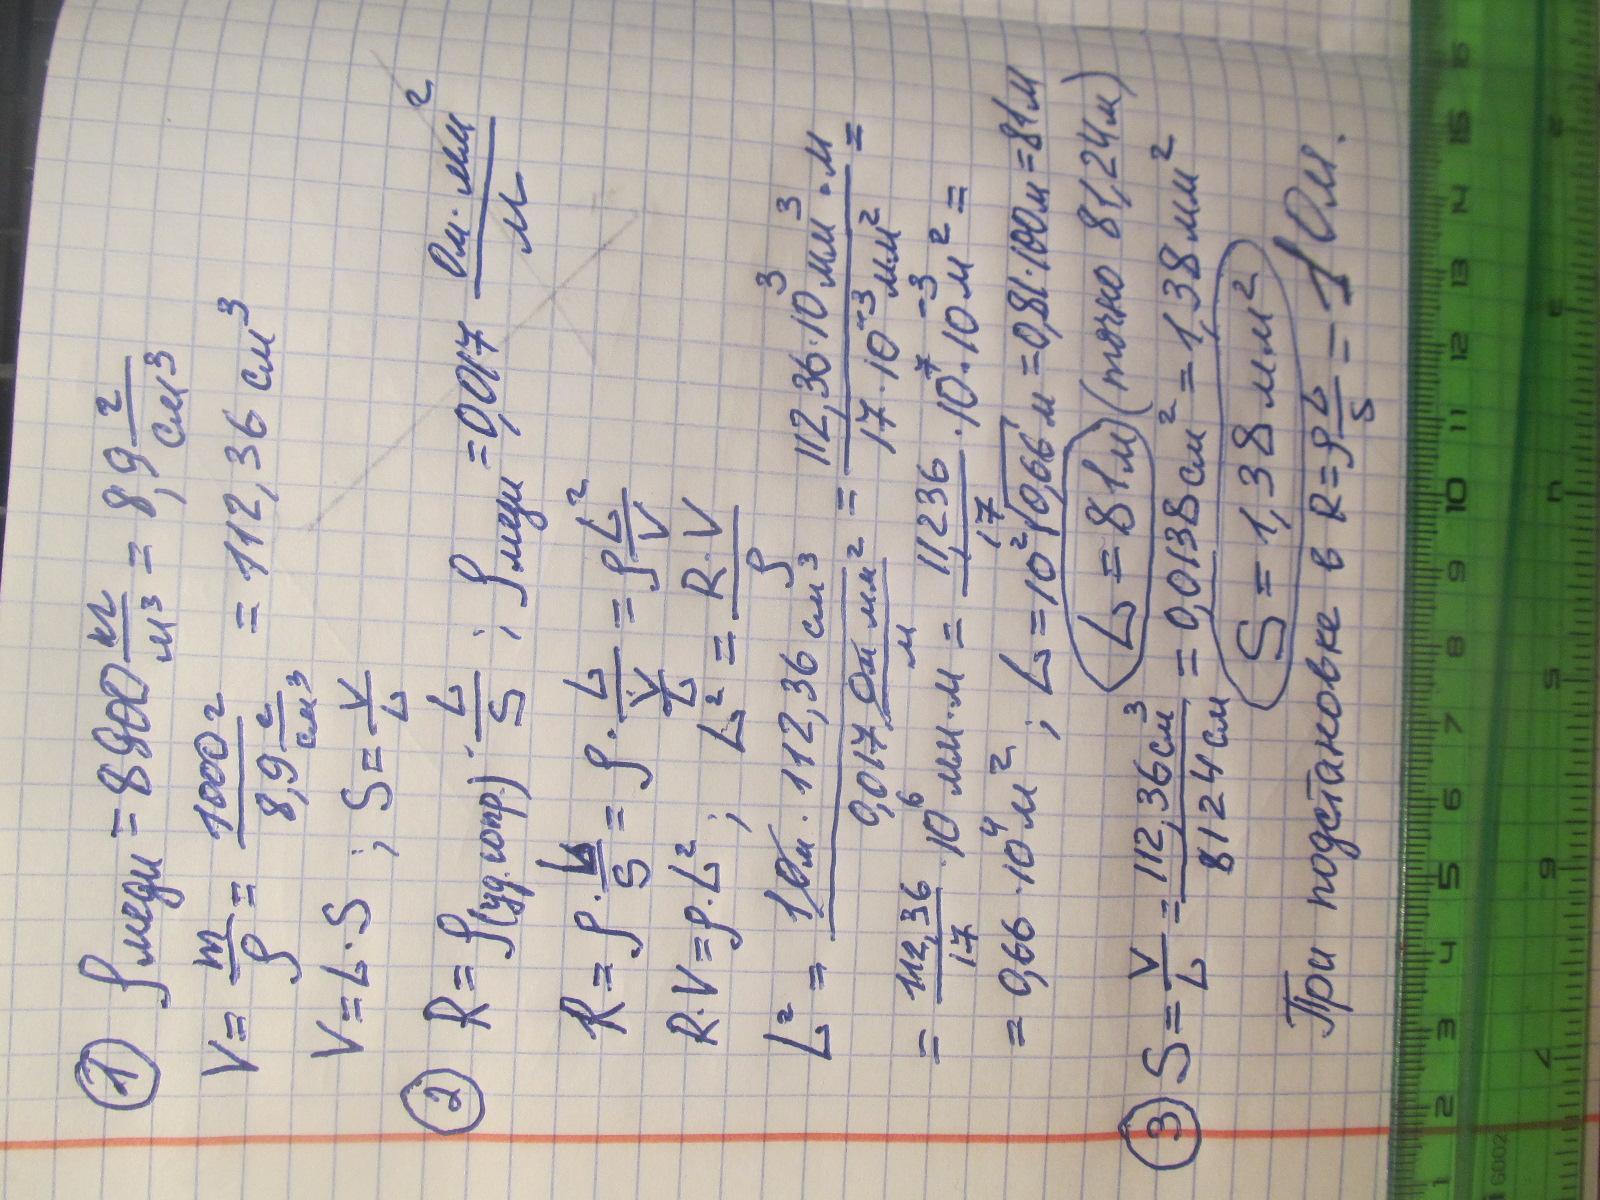 1 ρмеди = 8900 кг/м³ = 8,9 г/см³
V = m/ρ = 1000 г / 8,9 г/см³ = 112,36 см³
V = L · S ; S = V/L
2 R = ρ(уд. сопр.) · L/S ; ρмеди = 0,017 Ом · мм² / м
R = ρ · L/S = ρ · L / V/L = ρ L²/V
R · V = ρ · L² ; L² = R · V / ρ
L² = 1 Ом · 112,36 см³ / 0,017 Ом мм²/м = 112,36 · 10³ мм³ · м / 17 · 10⁻³ мм² =
= 112,36/17 · 10⁶ мм · м = 11,236/17 · 10⁷ · 10⁻³ м² =
= 0,66 · 10⁴ м² ; L = 10² √0,66 м = 0,81 · 100 м = 81 м
L = 81 м (точно 81,24 м)
3 S = V/L = 112,36 см³ / 8124 см = 0,0138 см² = 1,38 мм²
S = 1,38 мм²
При подстановке в R = ρ L/S = 1 Ом.
1 2 3 4 5 6 7 8 9 10 11 12 13 14 15 16
6002